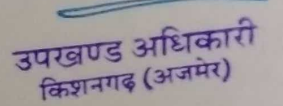 उपखण्ड अधिकारी
किशनगढ़ (अजमेर)